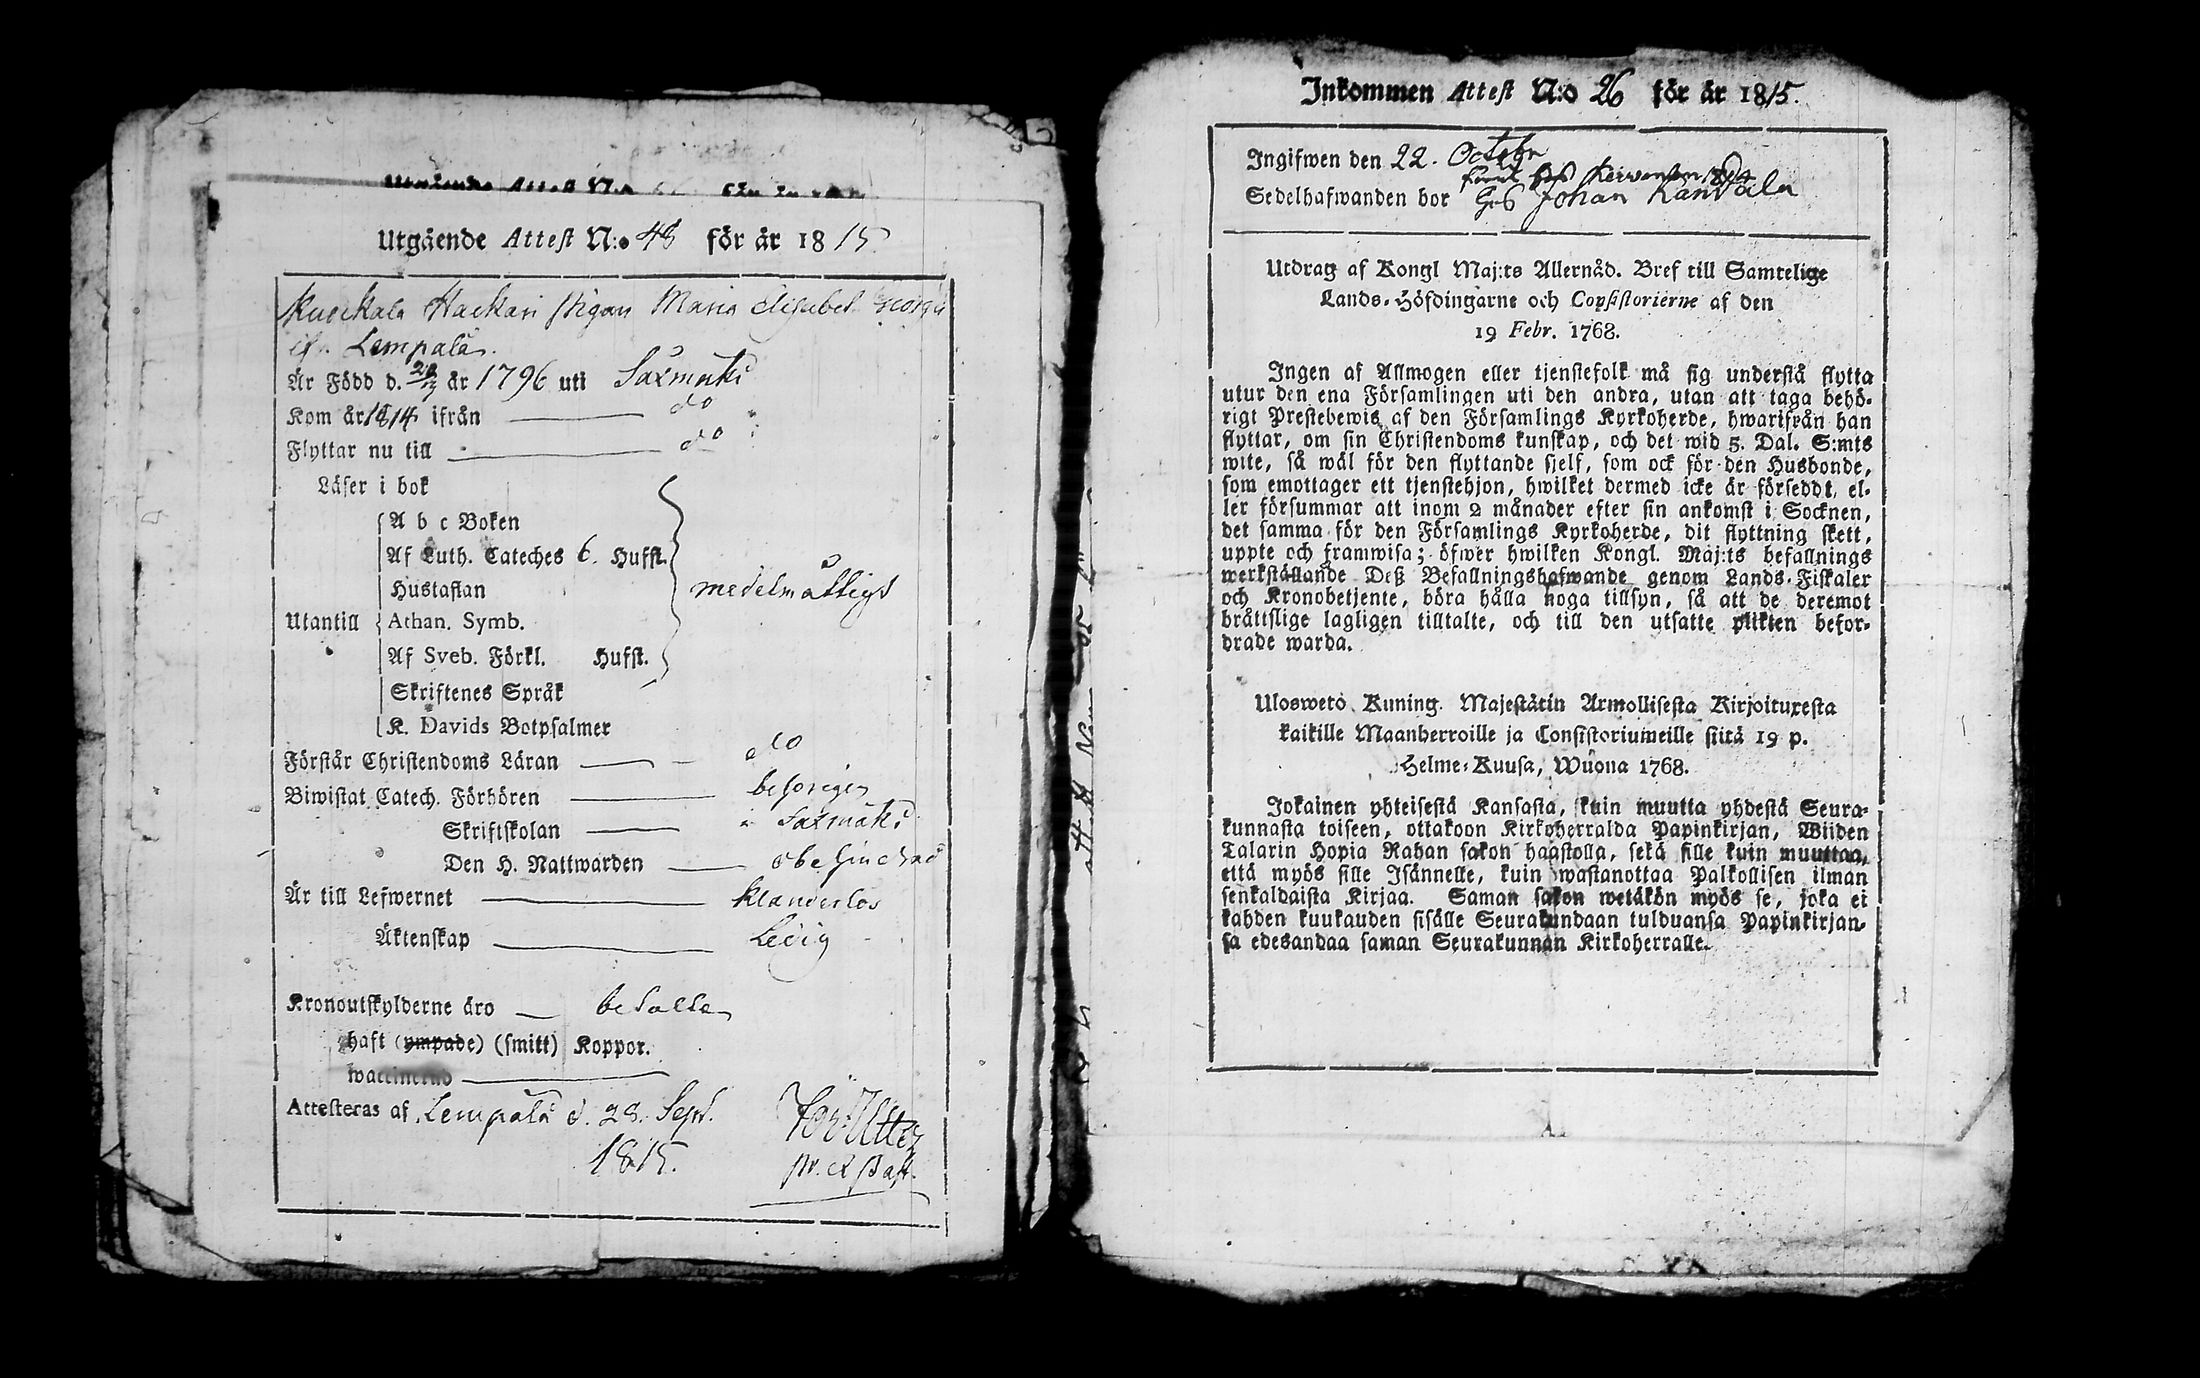 Utgående Attest N:o 48 för år 1815
Kuockala Haekari pigan Maria Elisabet
ifr. Lempälä.
Är Född d. år 1796 uti Säxmäki
Kom år 1814 ifrån do
Flyttar nu till do
Läser i bok
A b c Boken
Af Luth. Cateches 6. Hufst.
Hustaflan
medelmåttigt
Utantill Athan. Symb.
Af Sveb. Förkl. Hufst.
Skriftenes Språk
K. Davids Botpsalmer
Förstår Christendoms Läran do
Biwistat Catech. Förhören
Skriftskolan i Saxmäki
Den H. Nattwarden
Är till Lefwernet klanderlös
Äktenskap Ledig
Kronoutskylderne äro betalta
haft (ympade) (smitt) Koppor.
Attesteras af Lempälä d. 28. Sept.
1815.
Inkommen Attest N:o 26 för år 1815.
Ingifwen den 22. Octobr
Sedelhafwanden bor hos Johan
Utdrag af Kongl Maj:ts Allernåd. Bref till Samtelige
Lands-Höfdingarne och Consistorierne af den
19 Febr. 1768.
Ingen af Allmogen eller tjenstefolk må sig understå flytta
utur den ena Församlingen uti den andra, utan att taga behö-
rigt Prestebewis af den Församlings Kyrkoherde, hwarifrån han
flyttar, om sin Christendoms kunskap, och det wid 5. Dal. S:mts
wite, så wäl för den flyttande sjelf, som ock för den Husbonde,
som emottager ett tjenstehjon, hwilket dermed icke är försedt, el-
ler försummar att inom 2 månader efter sin ankomst i Socknen,
det samma för den Församlings Kyrkoherde, dit flyttning skett,
uppte och framwisa; öfwer hwilken Kongl. Maj:ts befallnings
werkställande Deß Befallningshafwande genom Lands-Fiskaler
och Kronobetjente, böra hålla noga tillsyn, så att de deremot
bråttslige lagligen tilltalte, och till den utsatte plikten befor-
drade warda.
Uloswetò Kuning. Majestätin Armollisesta Kirjoituxesta
kaikille Maanherroille ja Consistoriumeille siitä 19 p.
Helme-Kuusa, Wuona 1768.
Jokainen yhteisestä Kansasta, kuin muutta yhdestä Seura-
kunnasta toiseen, ottakoon Kirkoherralda Papinkirjan, Wiiden
Talarin Hopia Rahan sakon haastolla, sekä sille kuin muuttaa,
että myös sille Isännelle, kuin wastanottaa Palkollisen ilman
senkaldaista Kirjaa. Saman sakon wetäkön myös se, joka ei
kahden kuukauden sisälle Seurakundaan tulduansa Papinkirjan-
sa edesandaa saman Seurakunnan Kirkoherralle.